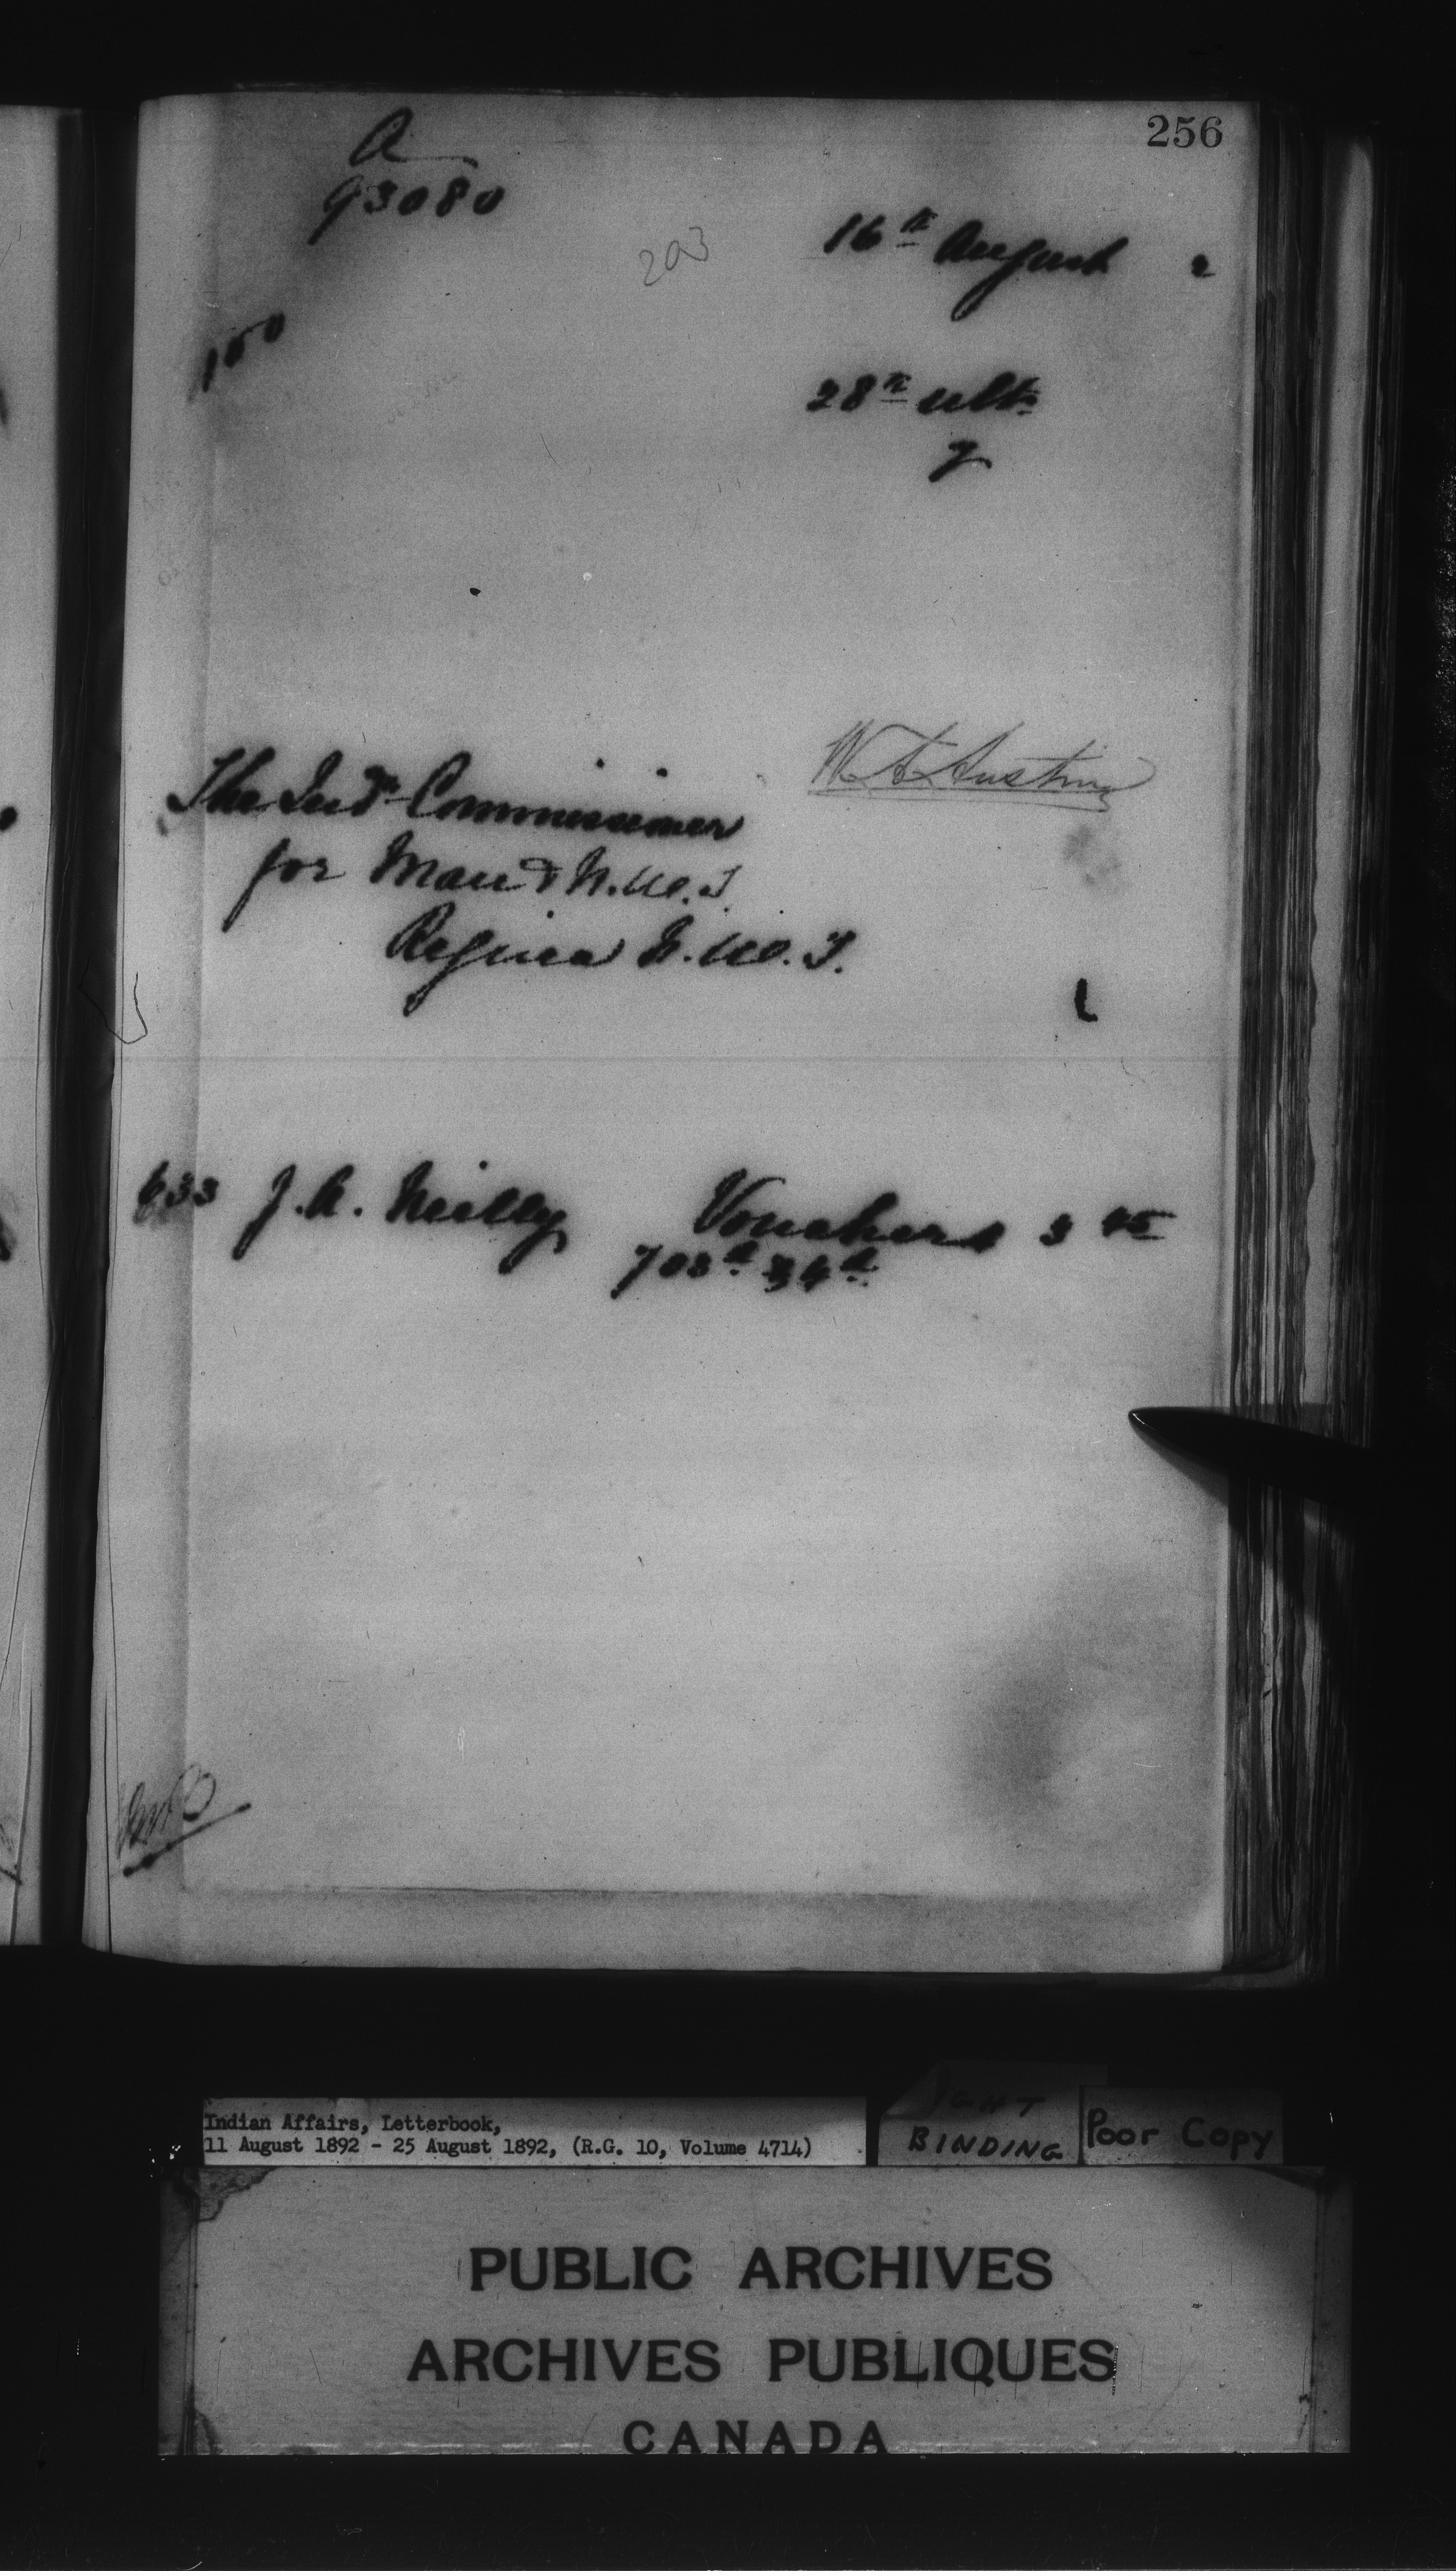 256
A
93080
203
16th August 2
150
28th ult.
7
W. A. Austin
The Ind. Commissioner
for Man & N.W.T.
Regina N.W.T.
633 J.A. Neilly Vouchers 3 45
703 34
Indian Affairs, Letterbook,
11 August 1892 - 25 August 1892, (R.G. 10, Volume 4714)
BINDING
Poor Copy
PUBLIC ARCHIVES
ARCHIVES PUBLIQUES
CANADA